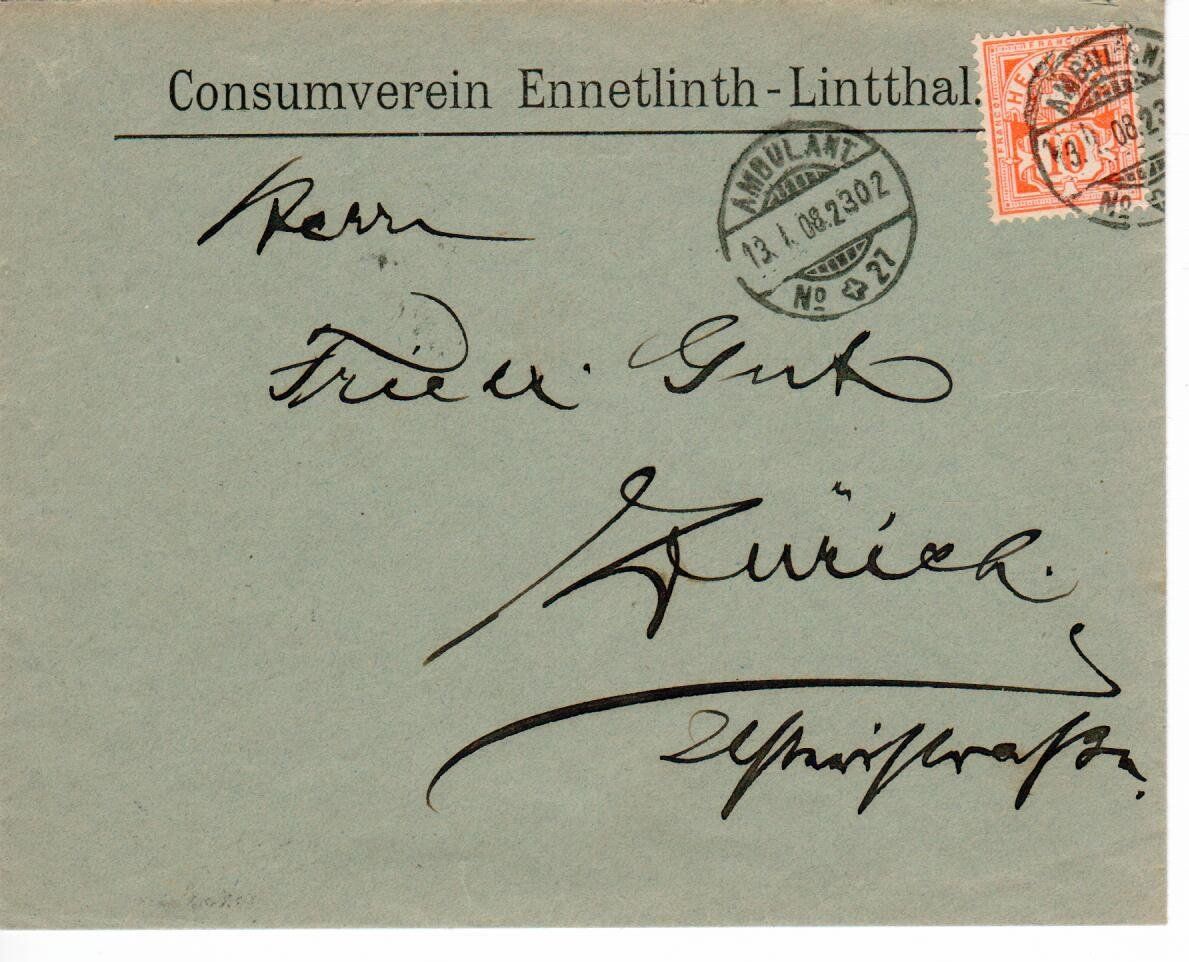 Consumverein Ennetlinth-Lintthal.
FRANCO
HE
10
AMBULANT
13. I. 08. 23
No
AMBULANT
13. I. 08. 2302
No 27
Herrn
Friedr. Gut
Zürich.